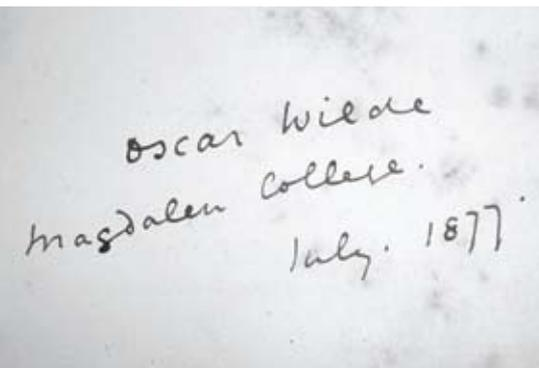 Oscar Wilde
Magdalen College.
July. 1877.